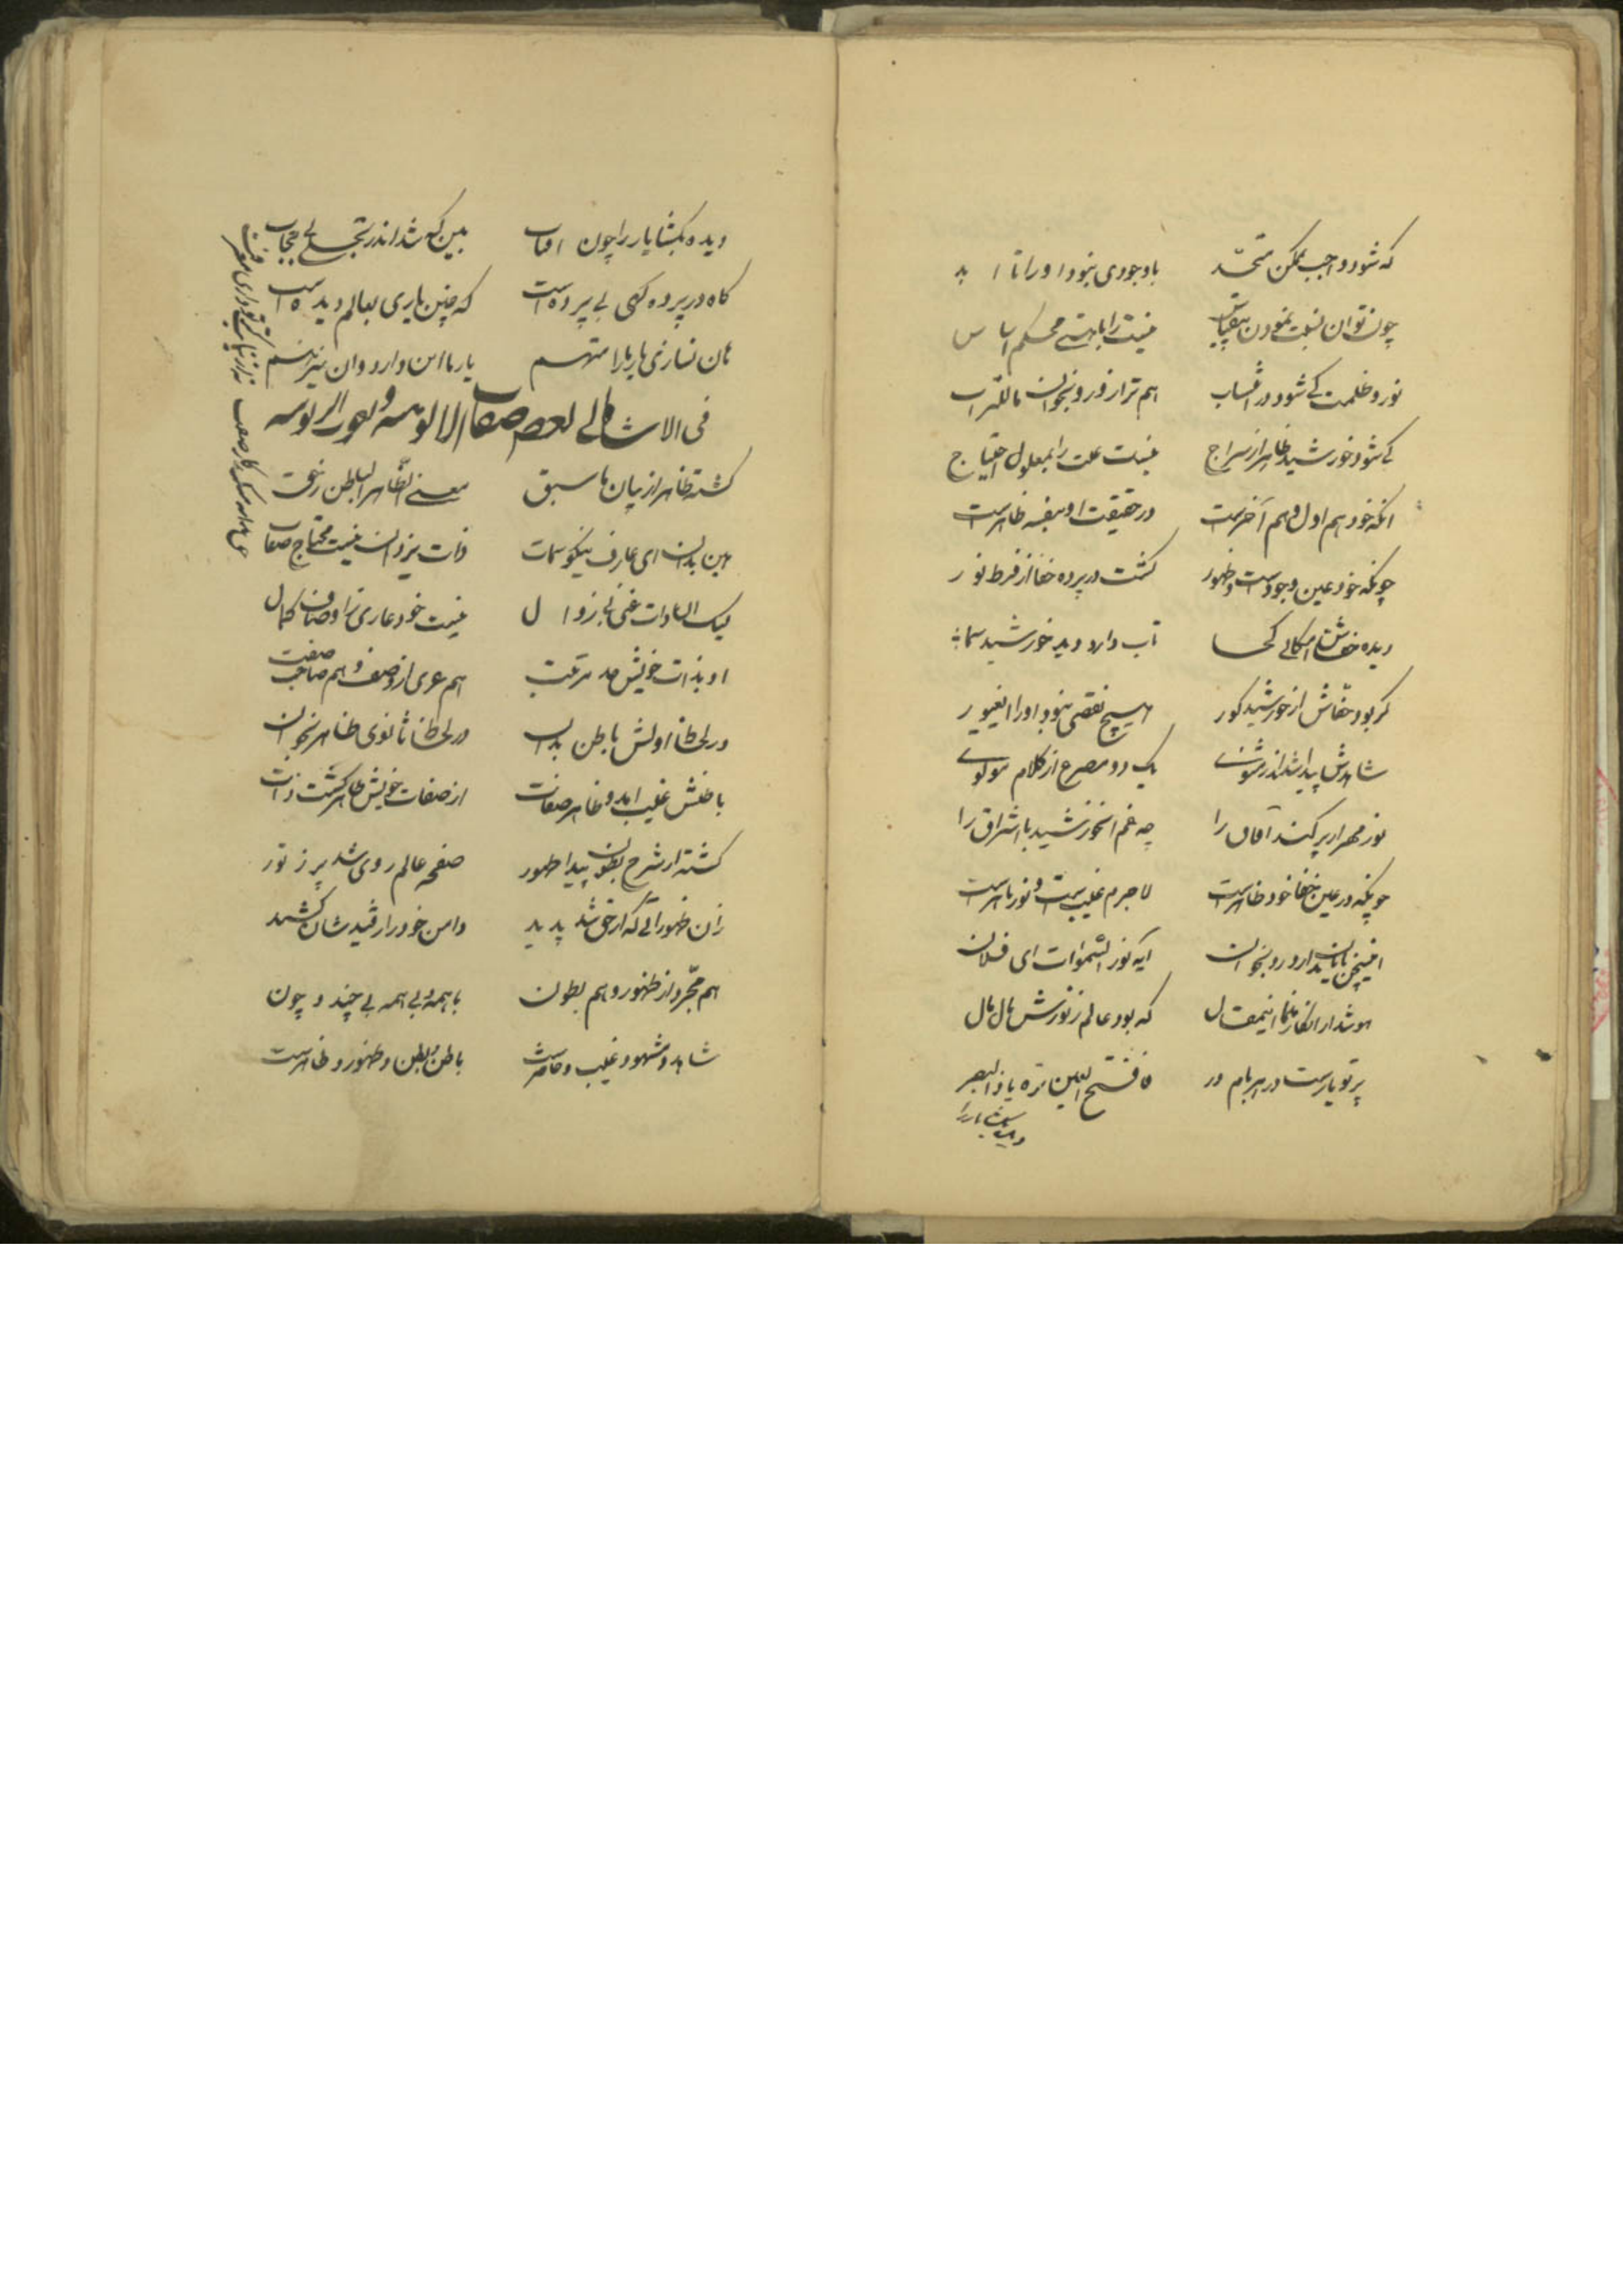 که شود واجب بممکن متحد با وجودی نبود او را تا ابد
چون توان نسبت نمودن نیستی را با هستی محکم اساس
نور و ظلمت کی شود در انتساب هم تراز نور و نجوان ماللتراب
کی شود خورشید ظاهر از سراج نیست علت را بمعلول احتیاج
انکه خود هم اول و هم آخرست در حقیقت او بنفسه ظاهرست
چونکه خود عین وجودست و ظهور کشت در پرده خفا از فرط نور
دیده خفاش امکانی کجا تاب دارد دید خورشید سما
کر بود خفاش از خورشید کور هیچ نقصی نبود او را ای غیور
شاهدش پیدا شد اندر مثنوی یک دو مصرع از کلام مولوی
نور مهر ار پر کند آفاق را چه غم آن خورشید با اشراق را
چونکه در عین خفا خود ظاهرست لاجرم غیب است و نور باهرست
اینچنین دارد رو بخوان ایه نور السموات ای فلان
هوشدار انکار منما اینمقال که بود عالم ز نورش مال مال
پرتو یارست در هر بام و در فافتح العین تره یا ذا البصر
دیده بکشا یار را
دیده بکشا یار را چون افتاب بین که شد اندر تجلی بی حجاب
کاه در پرده کهی بی پرده است که چنین یاری بعالم دیده است
هان نسازی یار را متهم یار ما این دارد و آن نیز هم
فی الاشاره الی بعض صفات الالوهیه و نعوت الربوبیه
کشته ظاهر از بیان ما سبق معنی الظاهر الباطن ز حق
هین بدان ای عارف نیکو سمات ذات یزدان نیست محتاج صفات
لیک ان ذات غنی بی زوال نیست خود عاری ز اوصاف کمال
او بذات خویش در مرتبت هم عری از وصف و هم صاحب صفت
در لحاظ اولش باطن بدان در لحاظ ثانوی ظاهر بخوان
باطنش غیب امد و ظاهر صفات از صفات خویش ظاهر کشت ذات
کشته از شرح بطون پیدا ظهور صفحه عالم ز وی شد پر ز نور
زان ظهور اتی که از حق شد پدید دامن خود را ز قید شان کشید
هم مجرد از ظهور و هم بطون با همه و بی همه بی چند و چون
شاهد و مشهود و غیب و حاضرست باطن و بطن و ظهور و ظاهرست